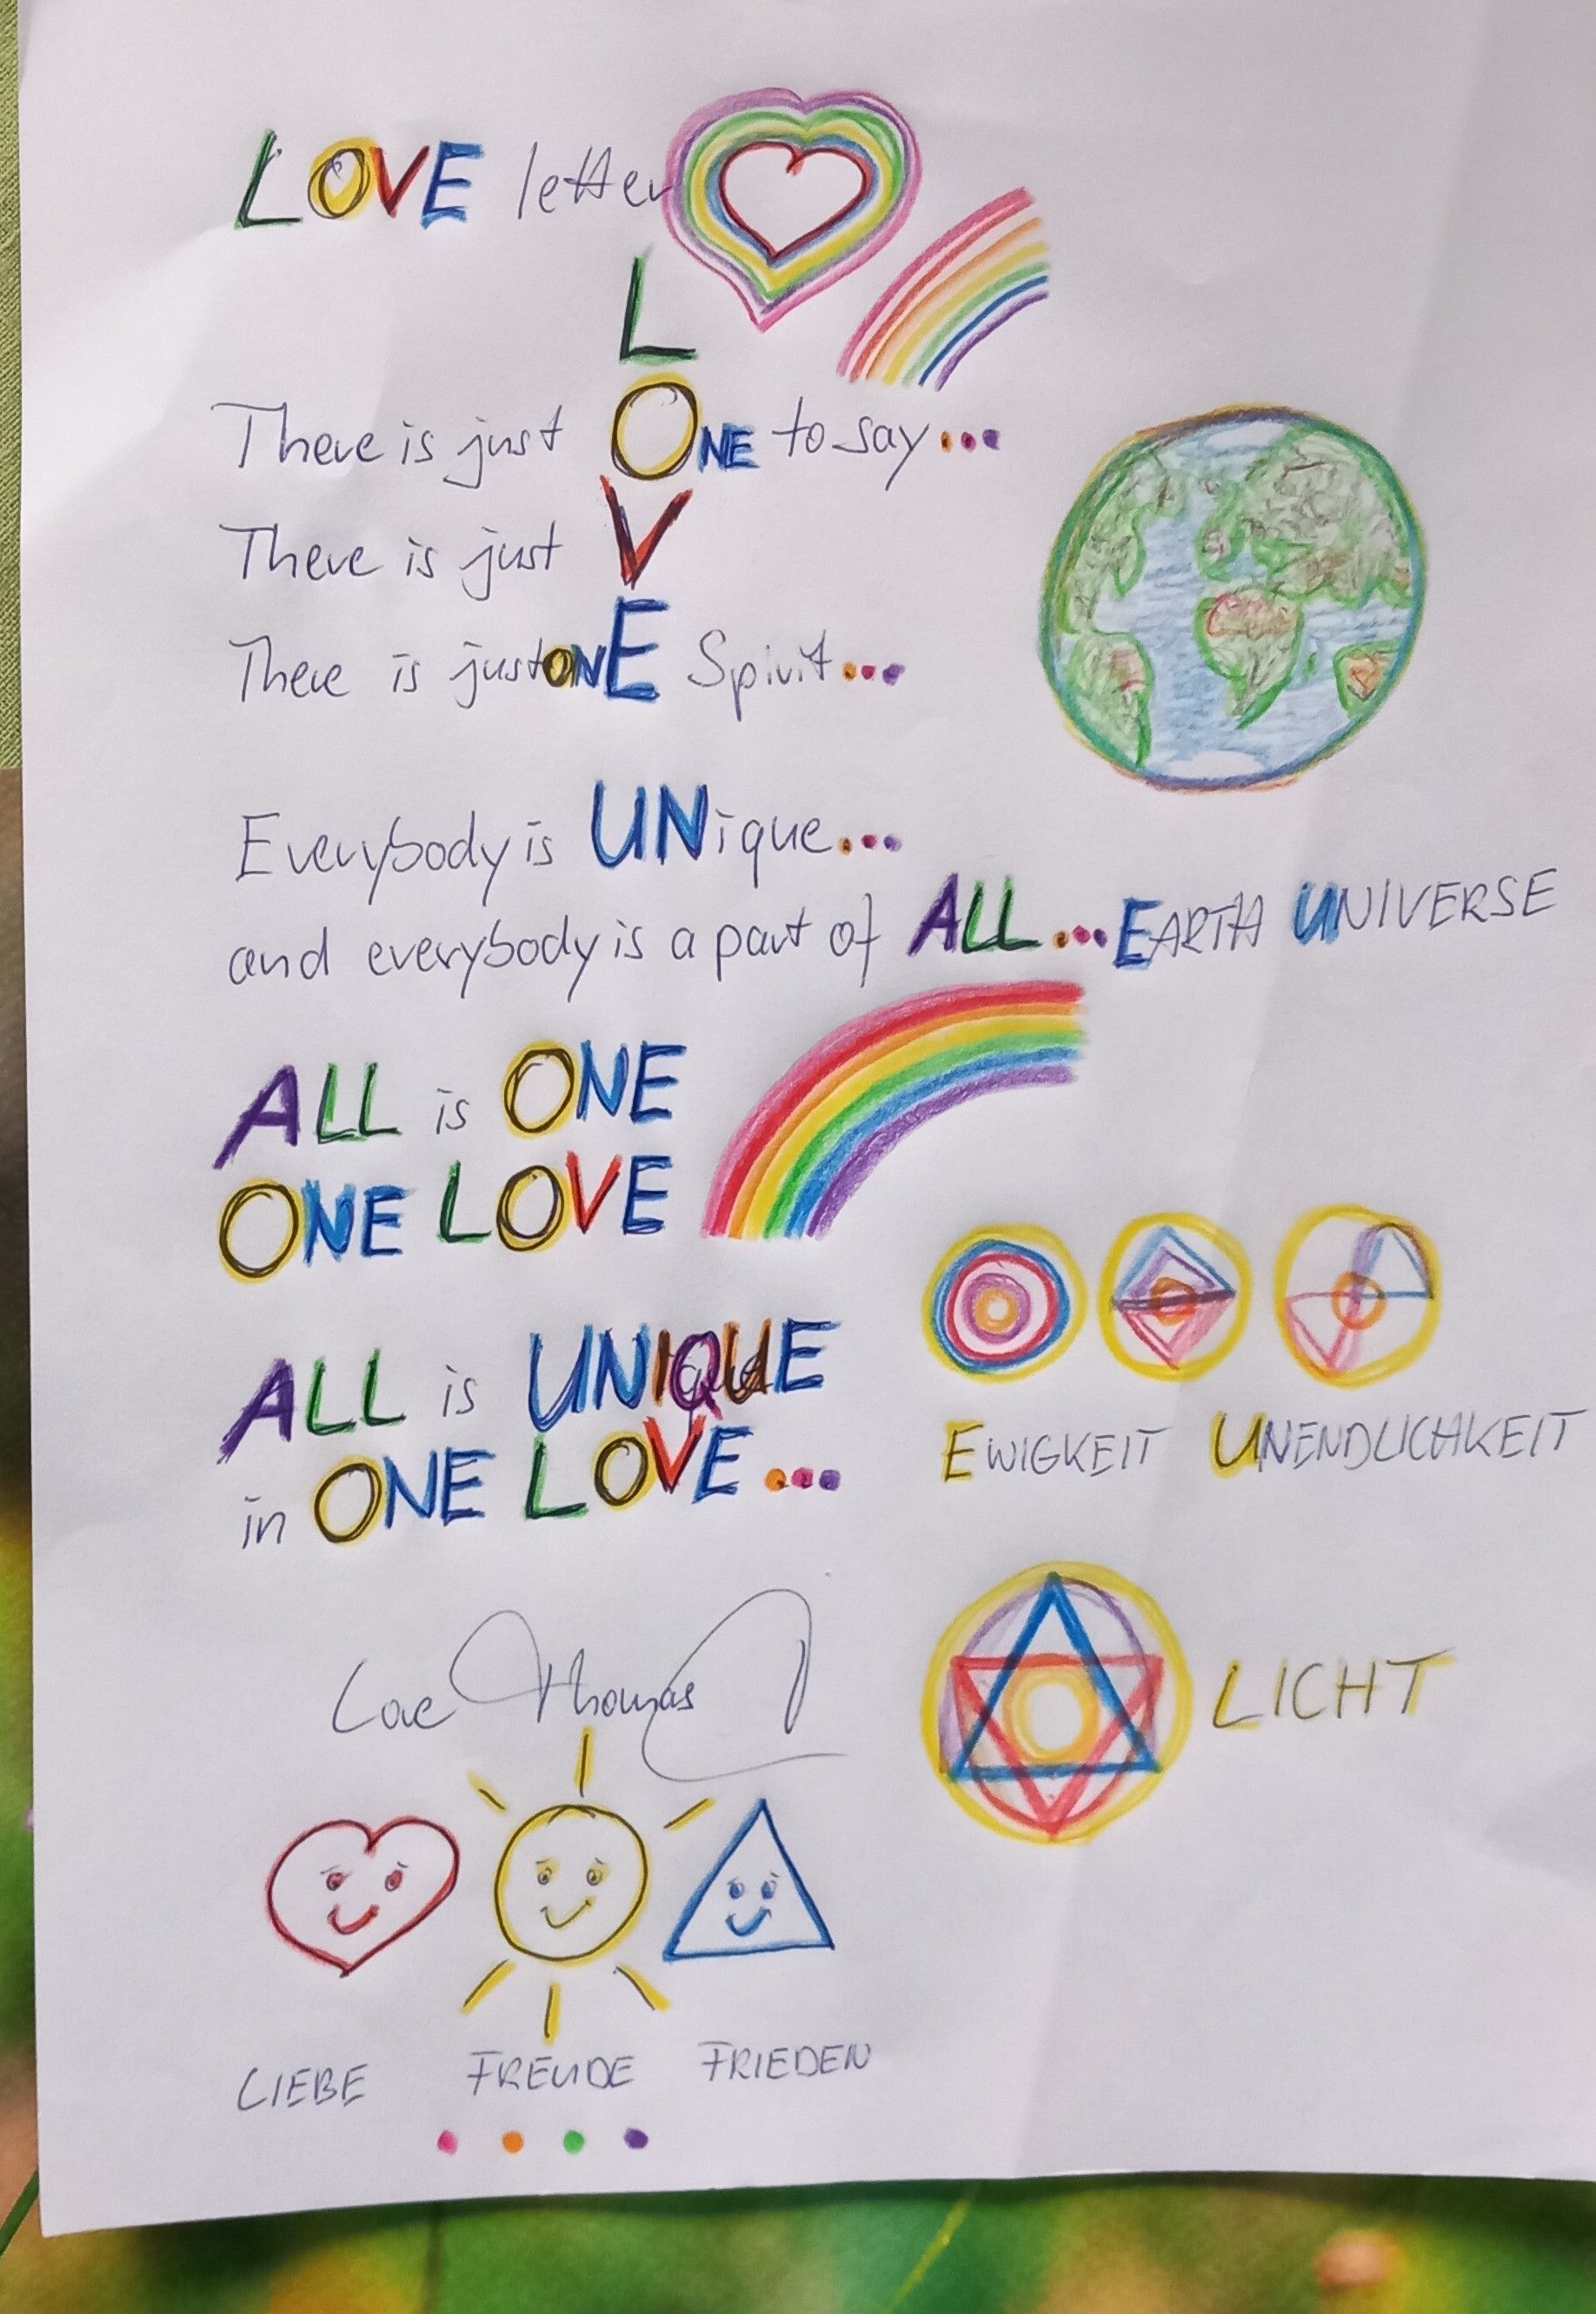 LOVE letter
L
There is just ONE to say...
There is just V
There is just ONE Spirit...
Everybody is UNique...
and everybody is a part of ALL...EARTH UNIVERSE
ALL is ONE
ONE LOVE
ALL is UNIQUE
in ONE LOVE...
EWIGKEIT UNENDLICHKEIT
Love Thomas
LICHT
LIEBE FREUDE FRIEDEN